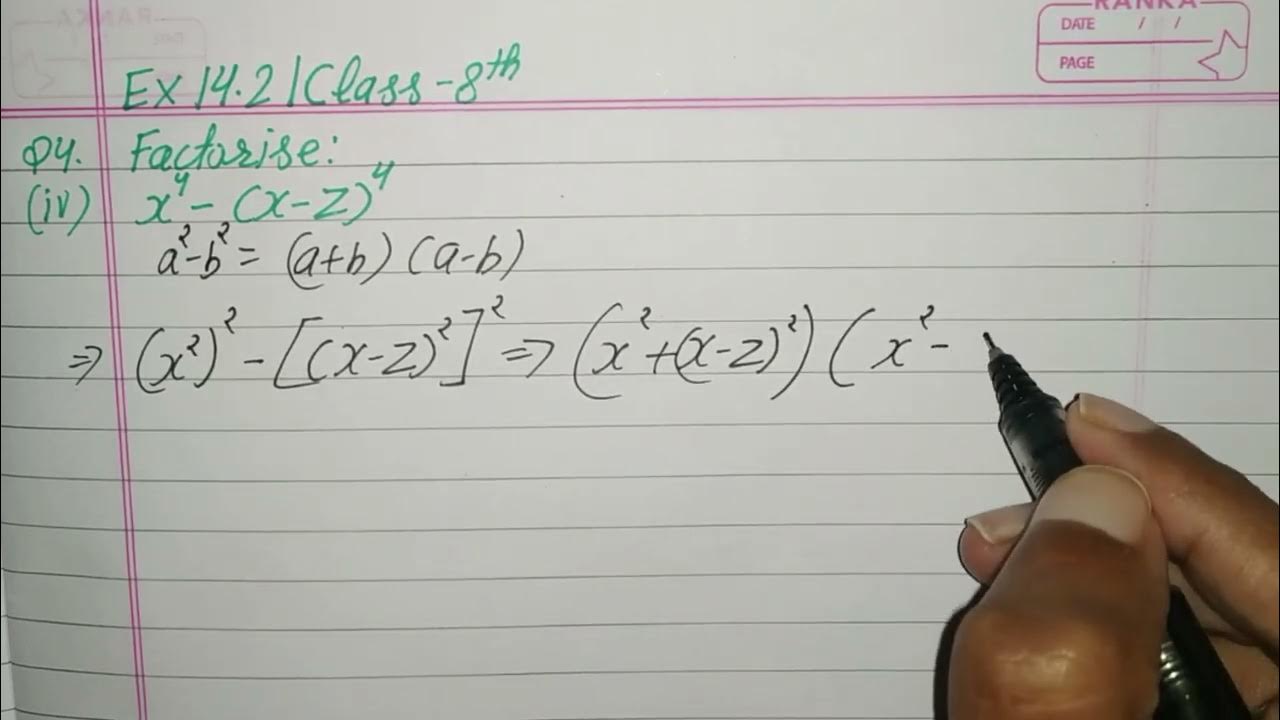 RANKA
DATE / /
PAGE
Ex 14.2 | Class - 8th
Q4. Factorise:
(iv) x⁴ - (x - z)⁴
a² - b² = (a+b) (a-b)
⇒ (x²)² - [(x-z)²]² ⇒ (x² + (x-z)²) (x² -